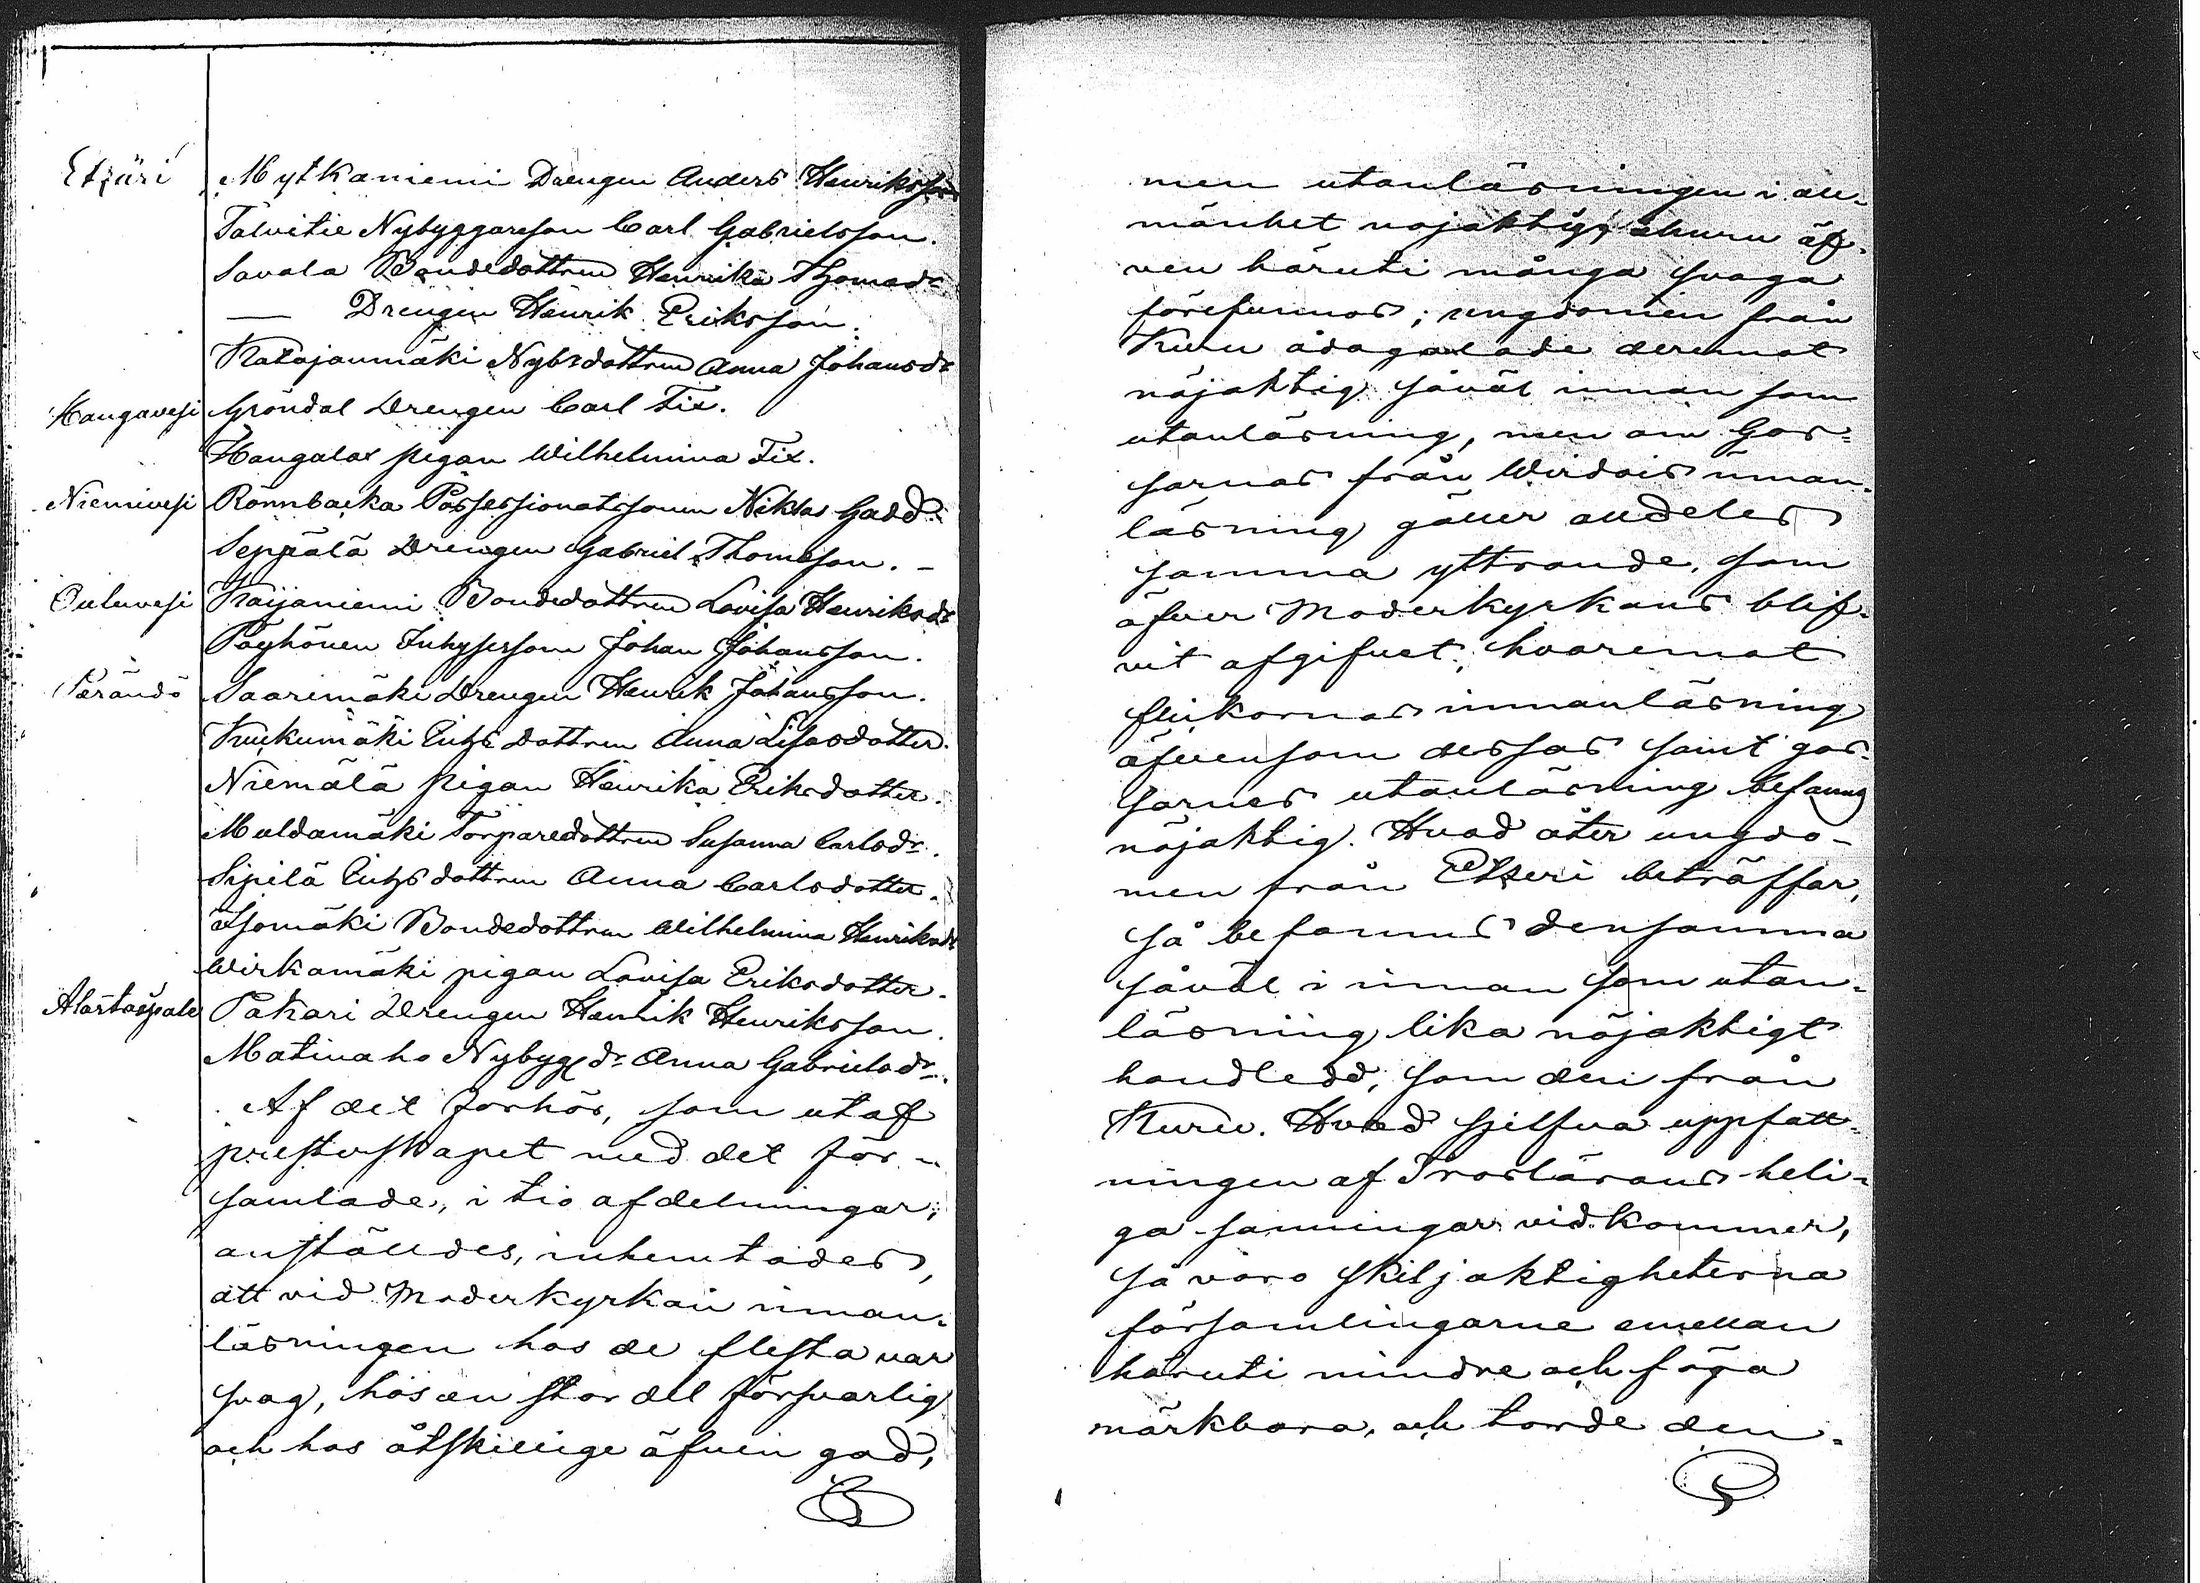 Etseri Mytkäniemi Drengen Anders Henriksson
Talvitie Nybyggareson Carl Gabrielsson.
Savola Bondedottren Henrika Thomasdr
— Drengen Henrik Eriksson.
Katajanmäki Nybsdottren Anna Johansdr
Hangavesi Gröndal Drengen Carl Fix.
Hangalax pigan Wilhelmina Fix.
Niemivesi Rönnbacka Possessionatssonen Niklas Gadd.
Seppälä Drengen Gabriel Thomsson. –
Ouluvesi Kaijaniemi Bondedottren Lovisa Henriksdr
Pöyhönen Inhysesson Johan Johansson.
Perändö Saarimäki Drengen Henrik Johansson.
Kuukumäki Inhs Dottren Anna Lisasdotter.
Niemälä pigan Henrika Eriksdotter.
Muldamäki Torparedottren Susanna Carlsdr.
Sipilä Inhs dottren Anna Carlsdotter.
Isomäki Bondedottren Wilhelmina Henriksdr
Wirkamäki pigan Lovisa Eriksdotter.
Alastaipale Pakari Drengen Henrik Henriksson.
Matinaho Nybygg dr Anna Gabrielsdr.
Af det förhör, som utaf
presterskapet med det för-
samlade, i tio afdelningar,
anställdes, inhemtades,
att vid Moderkyrkan innan-
läsningen hos de flesta var
svag, hos en stor del försvarlig
och hos åtskillige äfven god,
men utanläsningen i all-
mänhet nöjaktig, ehuru äf-
ven häruti många svaga
förefunnos; ungdomen från
Kuru ådagalade deremot
nöjaktig såväl innan som
utanläsning, men om Gos-
sarnas från Wirdois innan-
läsning gäller alldeles
samma yttrande, som
öfver Moderkyrkans blif-
vit afgifvet; hvaremot
flickornas innanläsning
äfvensom dessas samt gos-
sarnes utanläsning befanns
nöjaktig. Hvad åter ungdo-
men från Etseri beträffar,
så befanns densamma
såväl i innan som utan-
läsning lika nöjaktigt
handledd, som den från
Kuru. Hvad sjelfva uppfatt-
ningen af Troslärans heli-
ga sanningar vidkommer,
så voro skiljaktigheterna
församlingarne emellan
häruti mindre och föga
märkbara, och torde den-